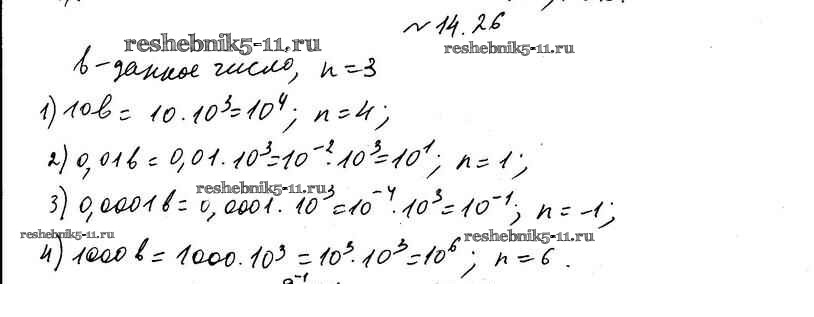 № 14.26
reshebnik5-11.ru reshebnik5-11.ru
b – данное число, n = 3
1) 10b = 10 · 10³ = 10⁴; n = 4;
2) 0,01b = 0,01 · 10³ = 10⁻² · 10³ = 10¹; n = 1;
reshebnik5-11.ru
3) 0,0001b = 0,0001 · 10³ = 10⁻⁴ · 10³ = 10⁻¹; n = -1;
reshebnik5-11.ru reshebnik5-11.ru
4) 1000b = 1000 · 10³ = 10³ · 10³ = 10⁶; n = 6.